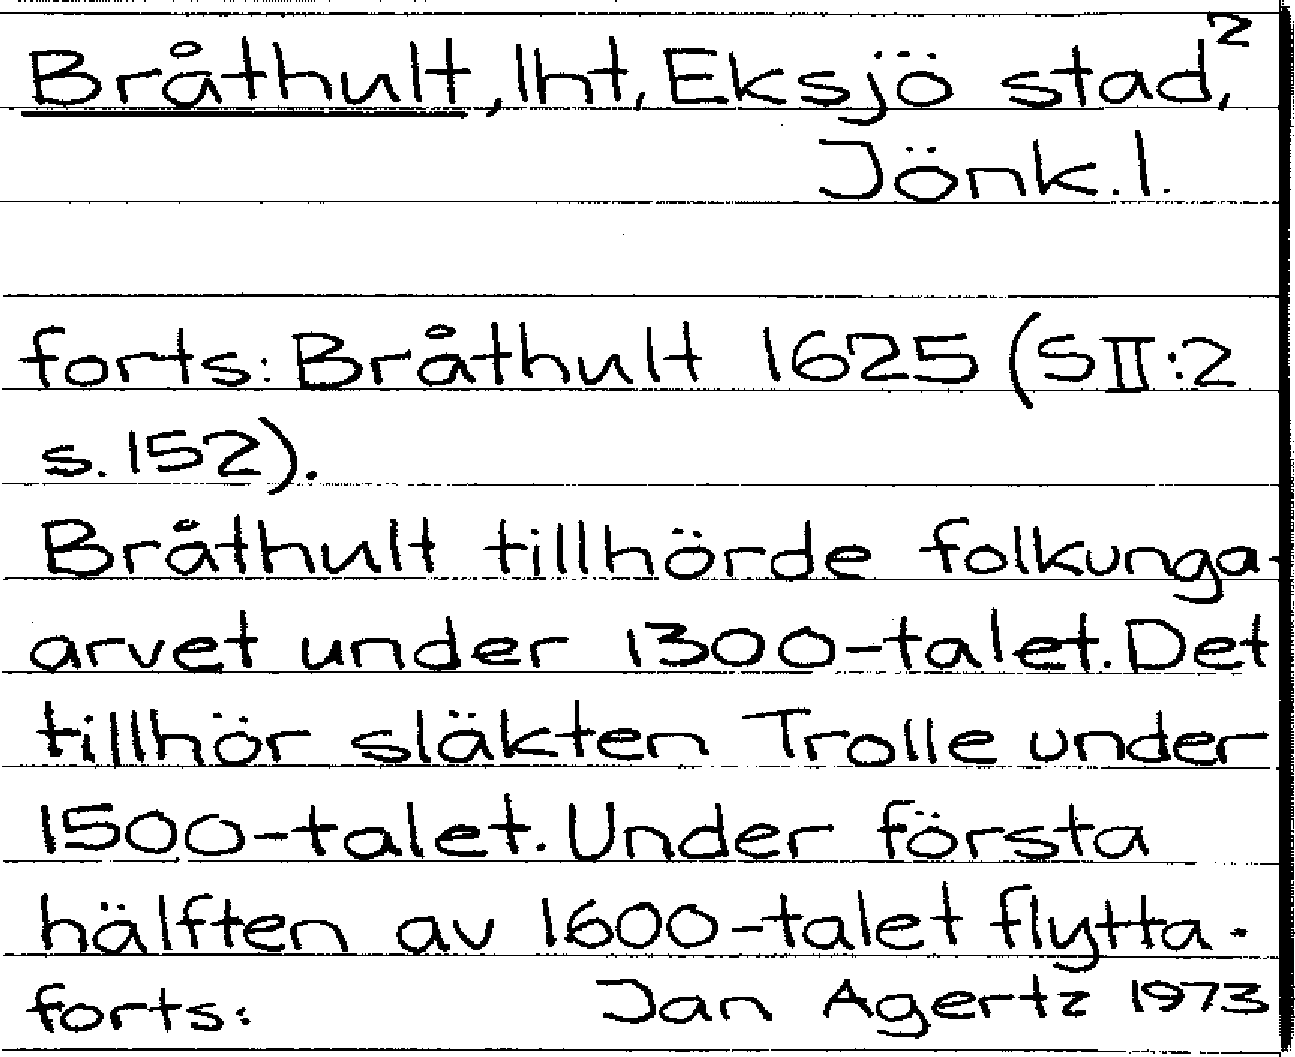 Bråthult, lht, Eksjö stad, 2
Jönk.l.
forts: Bråthult 1625 (S II:2
s. 152).
Bråthult tillhörde folkunga-
arvet under 1300-talet. Det
tillhör släkten Trolle under
1500-talet. Under första
hälften av 1600-talet flytta-
forts: Jan Agertz 1973